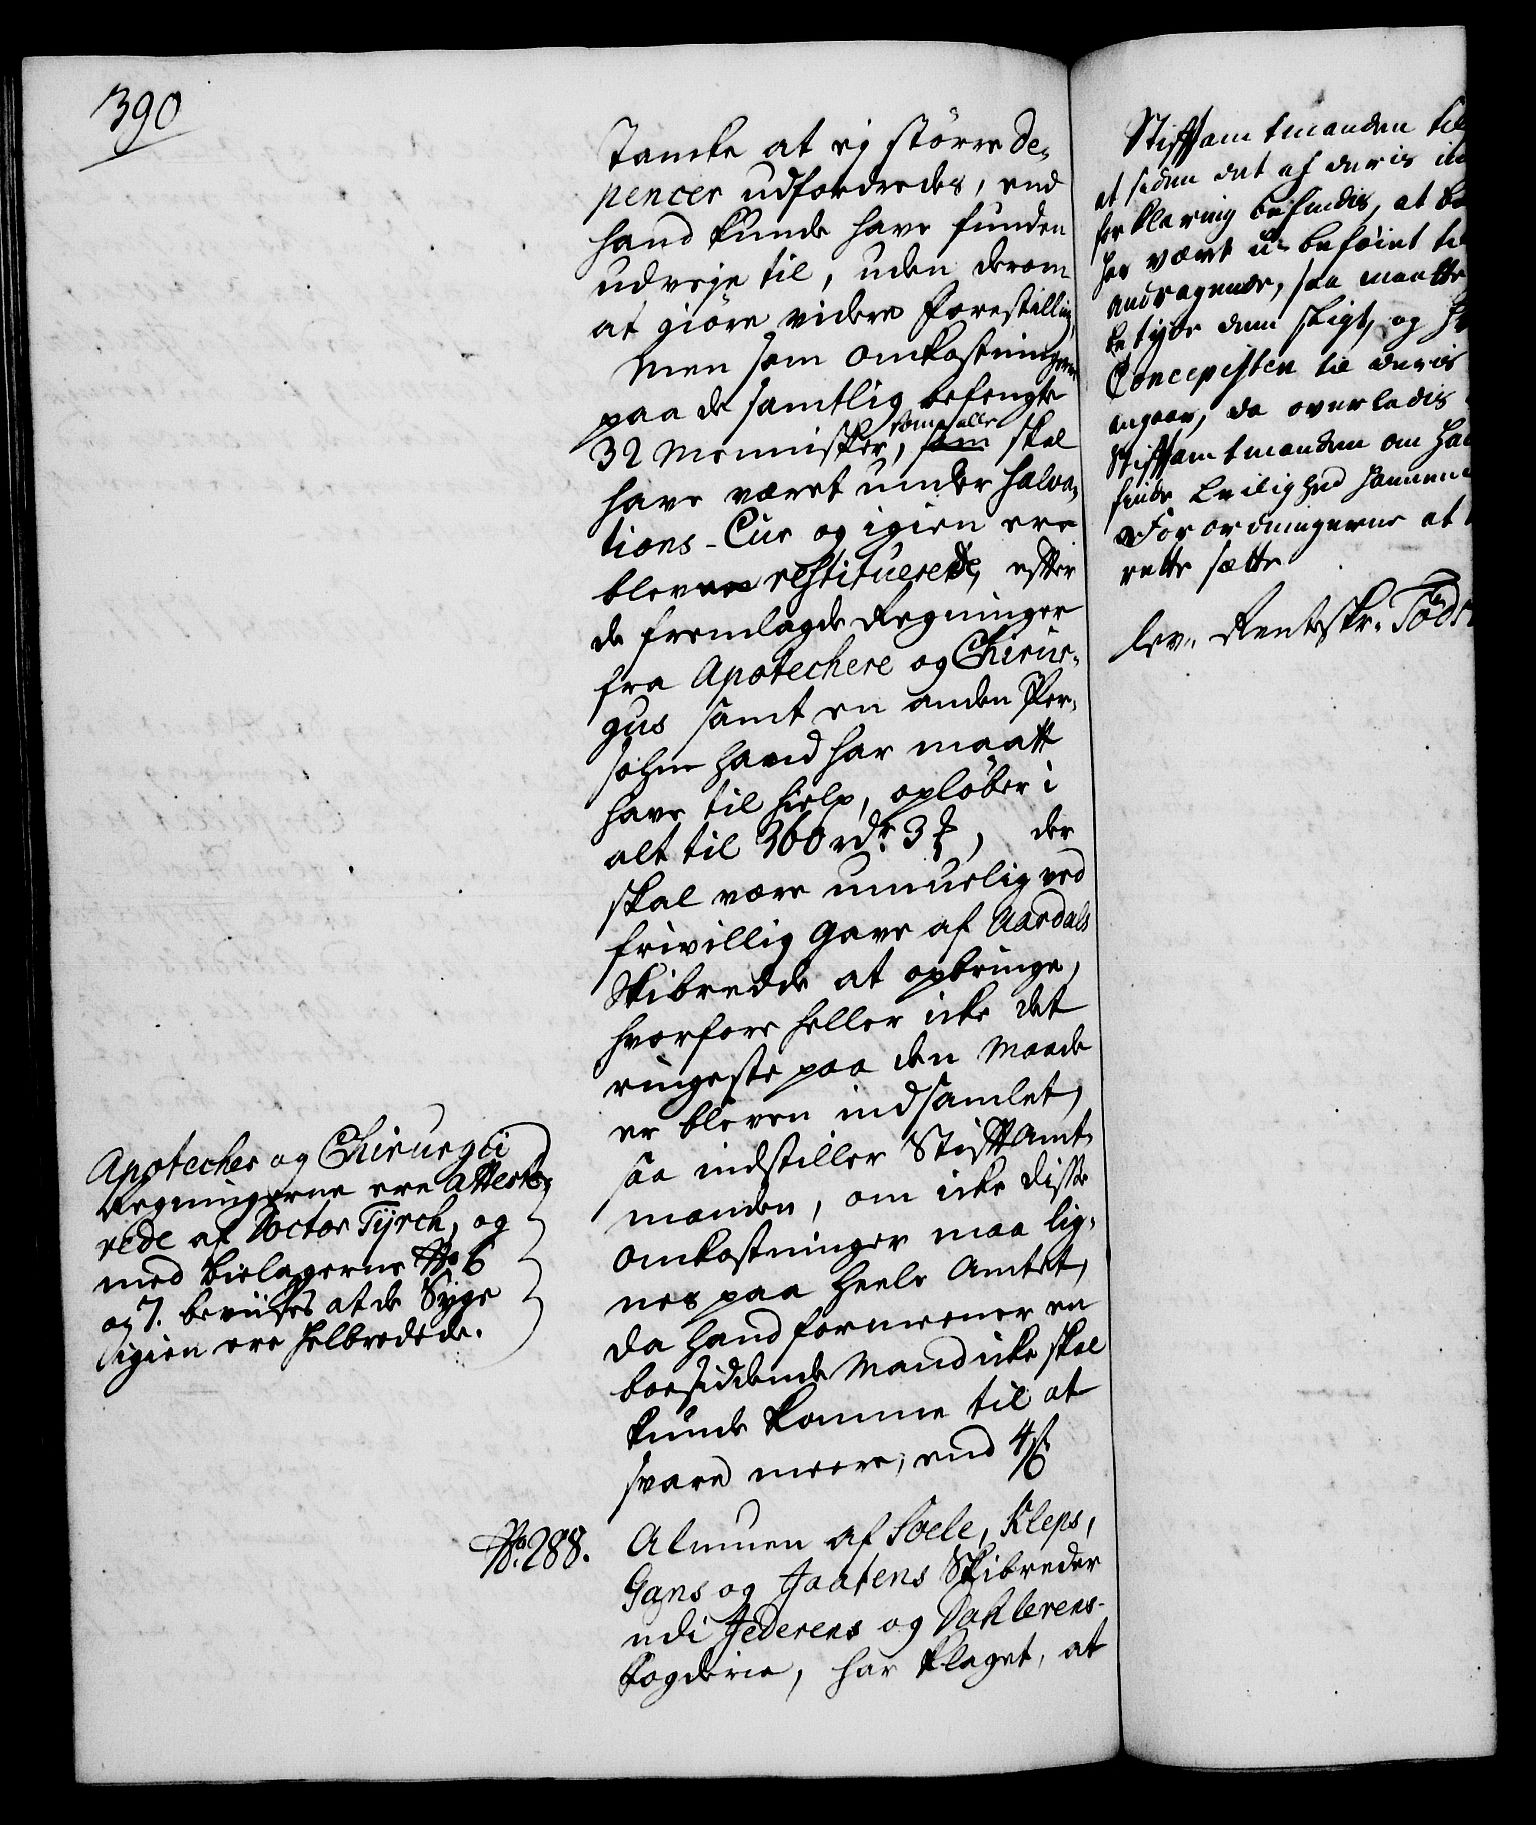 390
Tancke at ej större de-
pencer udfordredes, end
hand kunde have funden
udveje til, uden derom
at giöre videre Forestilling,
Men som Omkostningerne
paa de samtlig befengte
32 Mennisker, som alle skal
have været under Saliva-
tions-Cur og igien ere
blevne restituerede, efter
de fremlagde Regninger
fra Apotechere og Chirur-
gus samt en anden Per-
sohn hand har maatt
have til hielp, oplöber i
alt til 360 rdr. 3 ß, der
skal være umuelig ved
frivillig Gave af Aardals
Skibredde at opbringe,
hvorfore heller icke det
ringeste paa den Maade
er bleven indsamlet,
saa indstiller Stiftamt-
manden, om icke disse
Omkostninger maa lig-
nes paa heele Amtet,
da hand formeener en
boesiddende Mand icke skal
kunde komme til at
svare meere, end 4 ß
Apotecher og Chirurgii
Regningerne ere atteste-
rede af Doctor Tÿrch, og
med bielagerne No 6
og 7. beviises at de Syge
igien ere helbredede.
No. 288.
Almuen af Soele, Kleps,
Gans og Jaatens Skibreder
udi Jederens og Dahlerens
Fogderie, har klaget, at
Stiftamtmanden
at siden det af deris
forklaring befindes, at
har været u-beföiet
andragende, saa maatte
betyde dem sligt, og
Concepisten til deris
angaar, da overlades
Stiftamtmanden om
finde Leilighed hannem
Forordningerne at
rette sætte
lev. Renteskr.